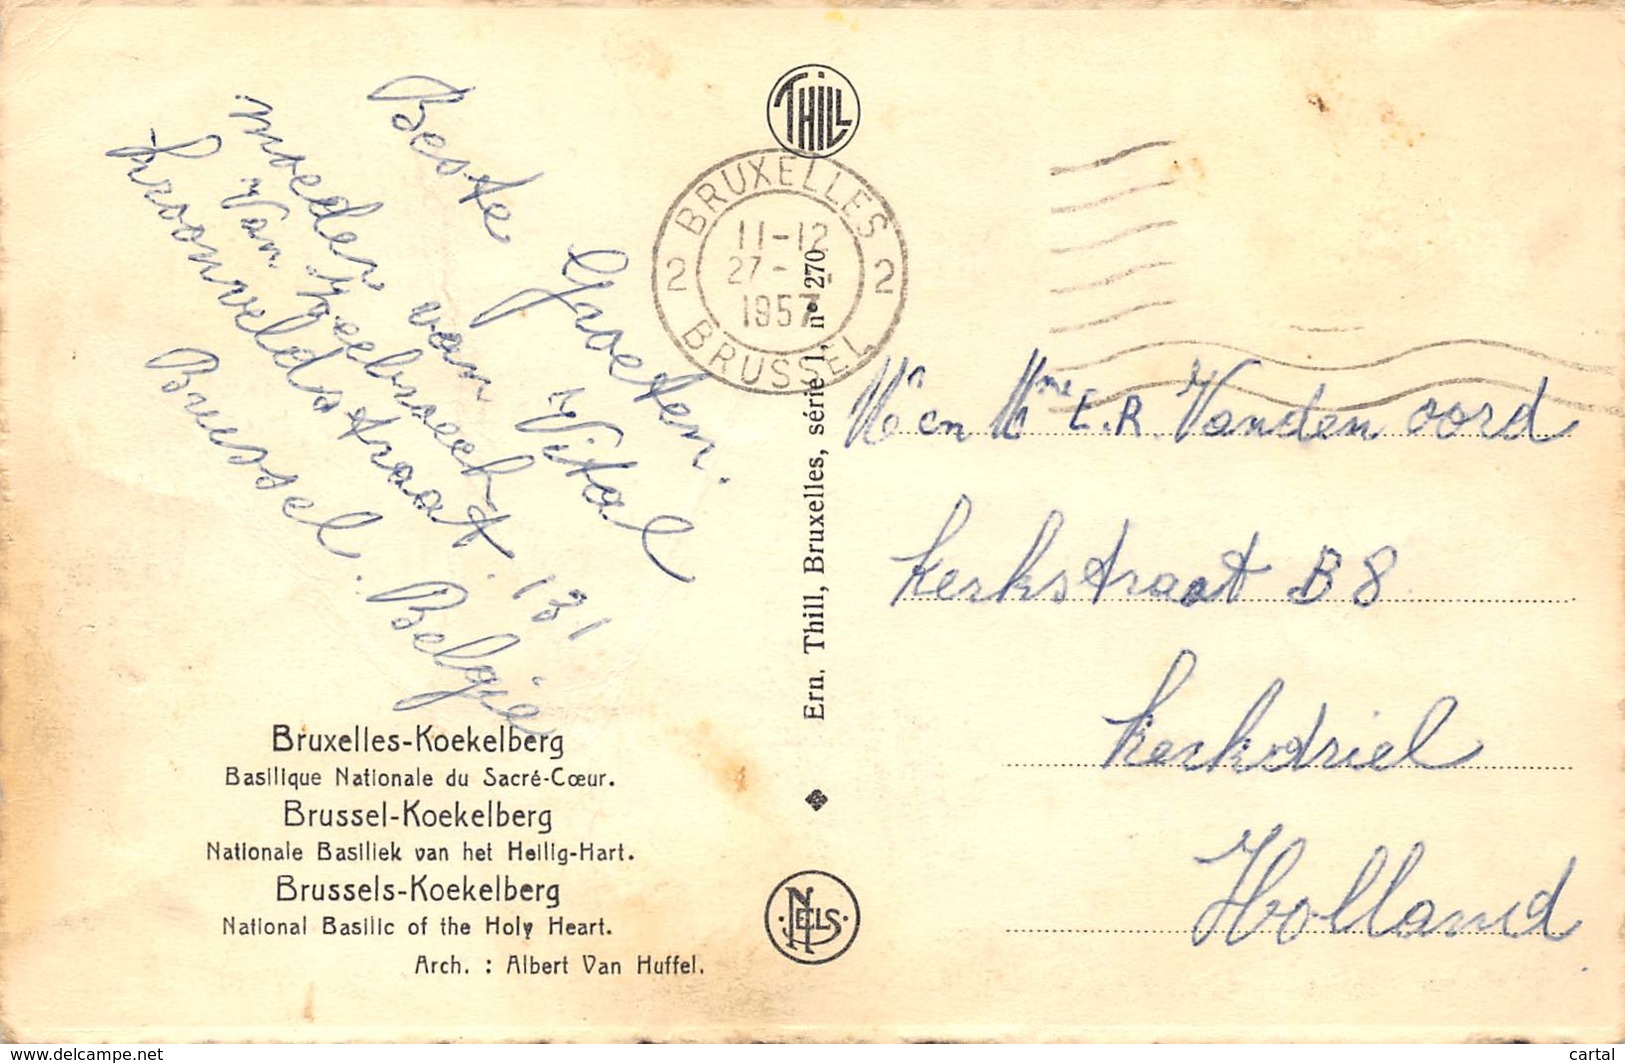 Beste Groeten.
moeder van Vital
Van Zeebroeck
kroonveldstraat. 131
Brussel. België
Bruxelles-Koekelberg
Basilique Nationale du Sacré-Cœur.
Brussel-Koekelberg
Nationale Basiliek van het Heilig-Hart.
Brussels-Koekelberg
National Basilic of the Holy Heart.
Arch. : Albert Van Huffel.
THILL
BRUXELLES
2 2
11-12
27-
1957
BRUSSEL
Ern. Thill, Bruxelles, série 1, nº 270.
NELS
Mr en Mme L.R. Vanden oord
Kerkstraat B8
Kerkdriel
Holland
www.delcampe.net
cartal